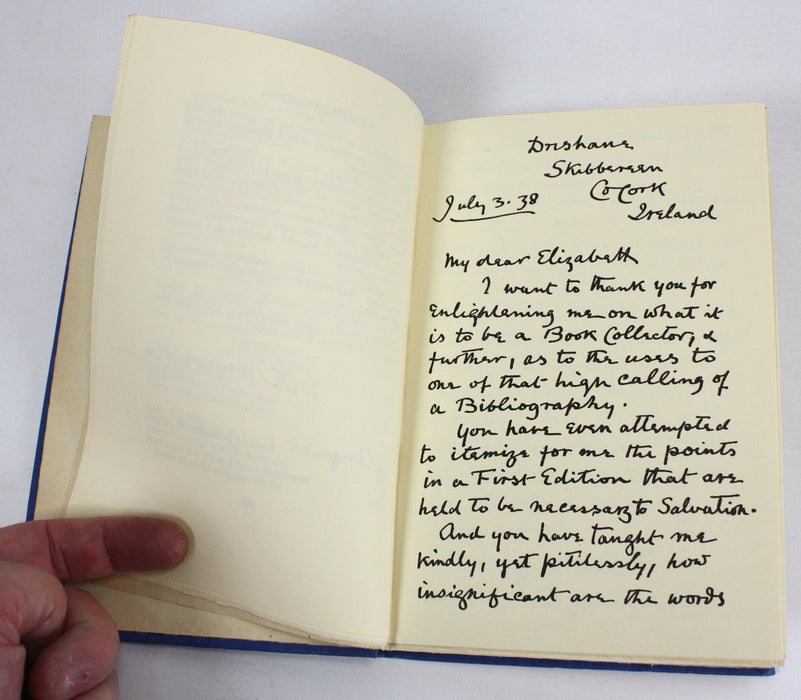 Drishane
Skibbereen
Co Cork
Ireland
July 3. 38
My dear Elizabeth
I want to thank you for
Enlightening me on what it
is to be a Book Collector, &
further, as to the uses to
one of that high calling of
a Bibliography.
You have even attempted
to itemize for me the points
in a First Edition that are
held to be necessary to Salvation.
And you have taught me
kindly, yet pitilessly, how
insignificant are the words